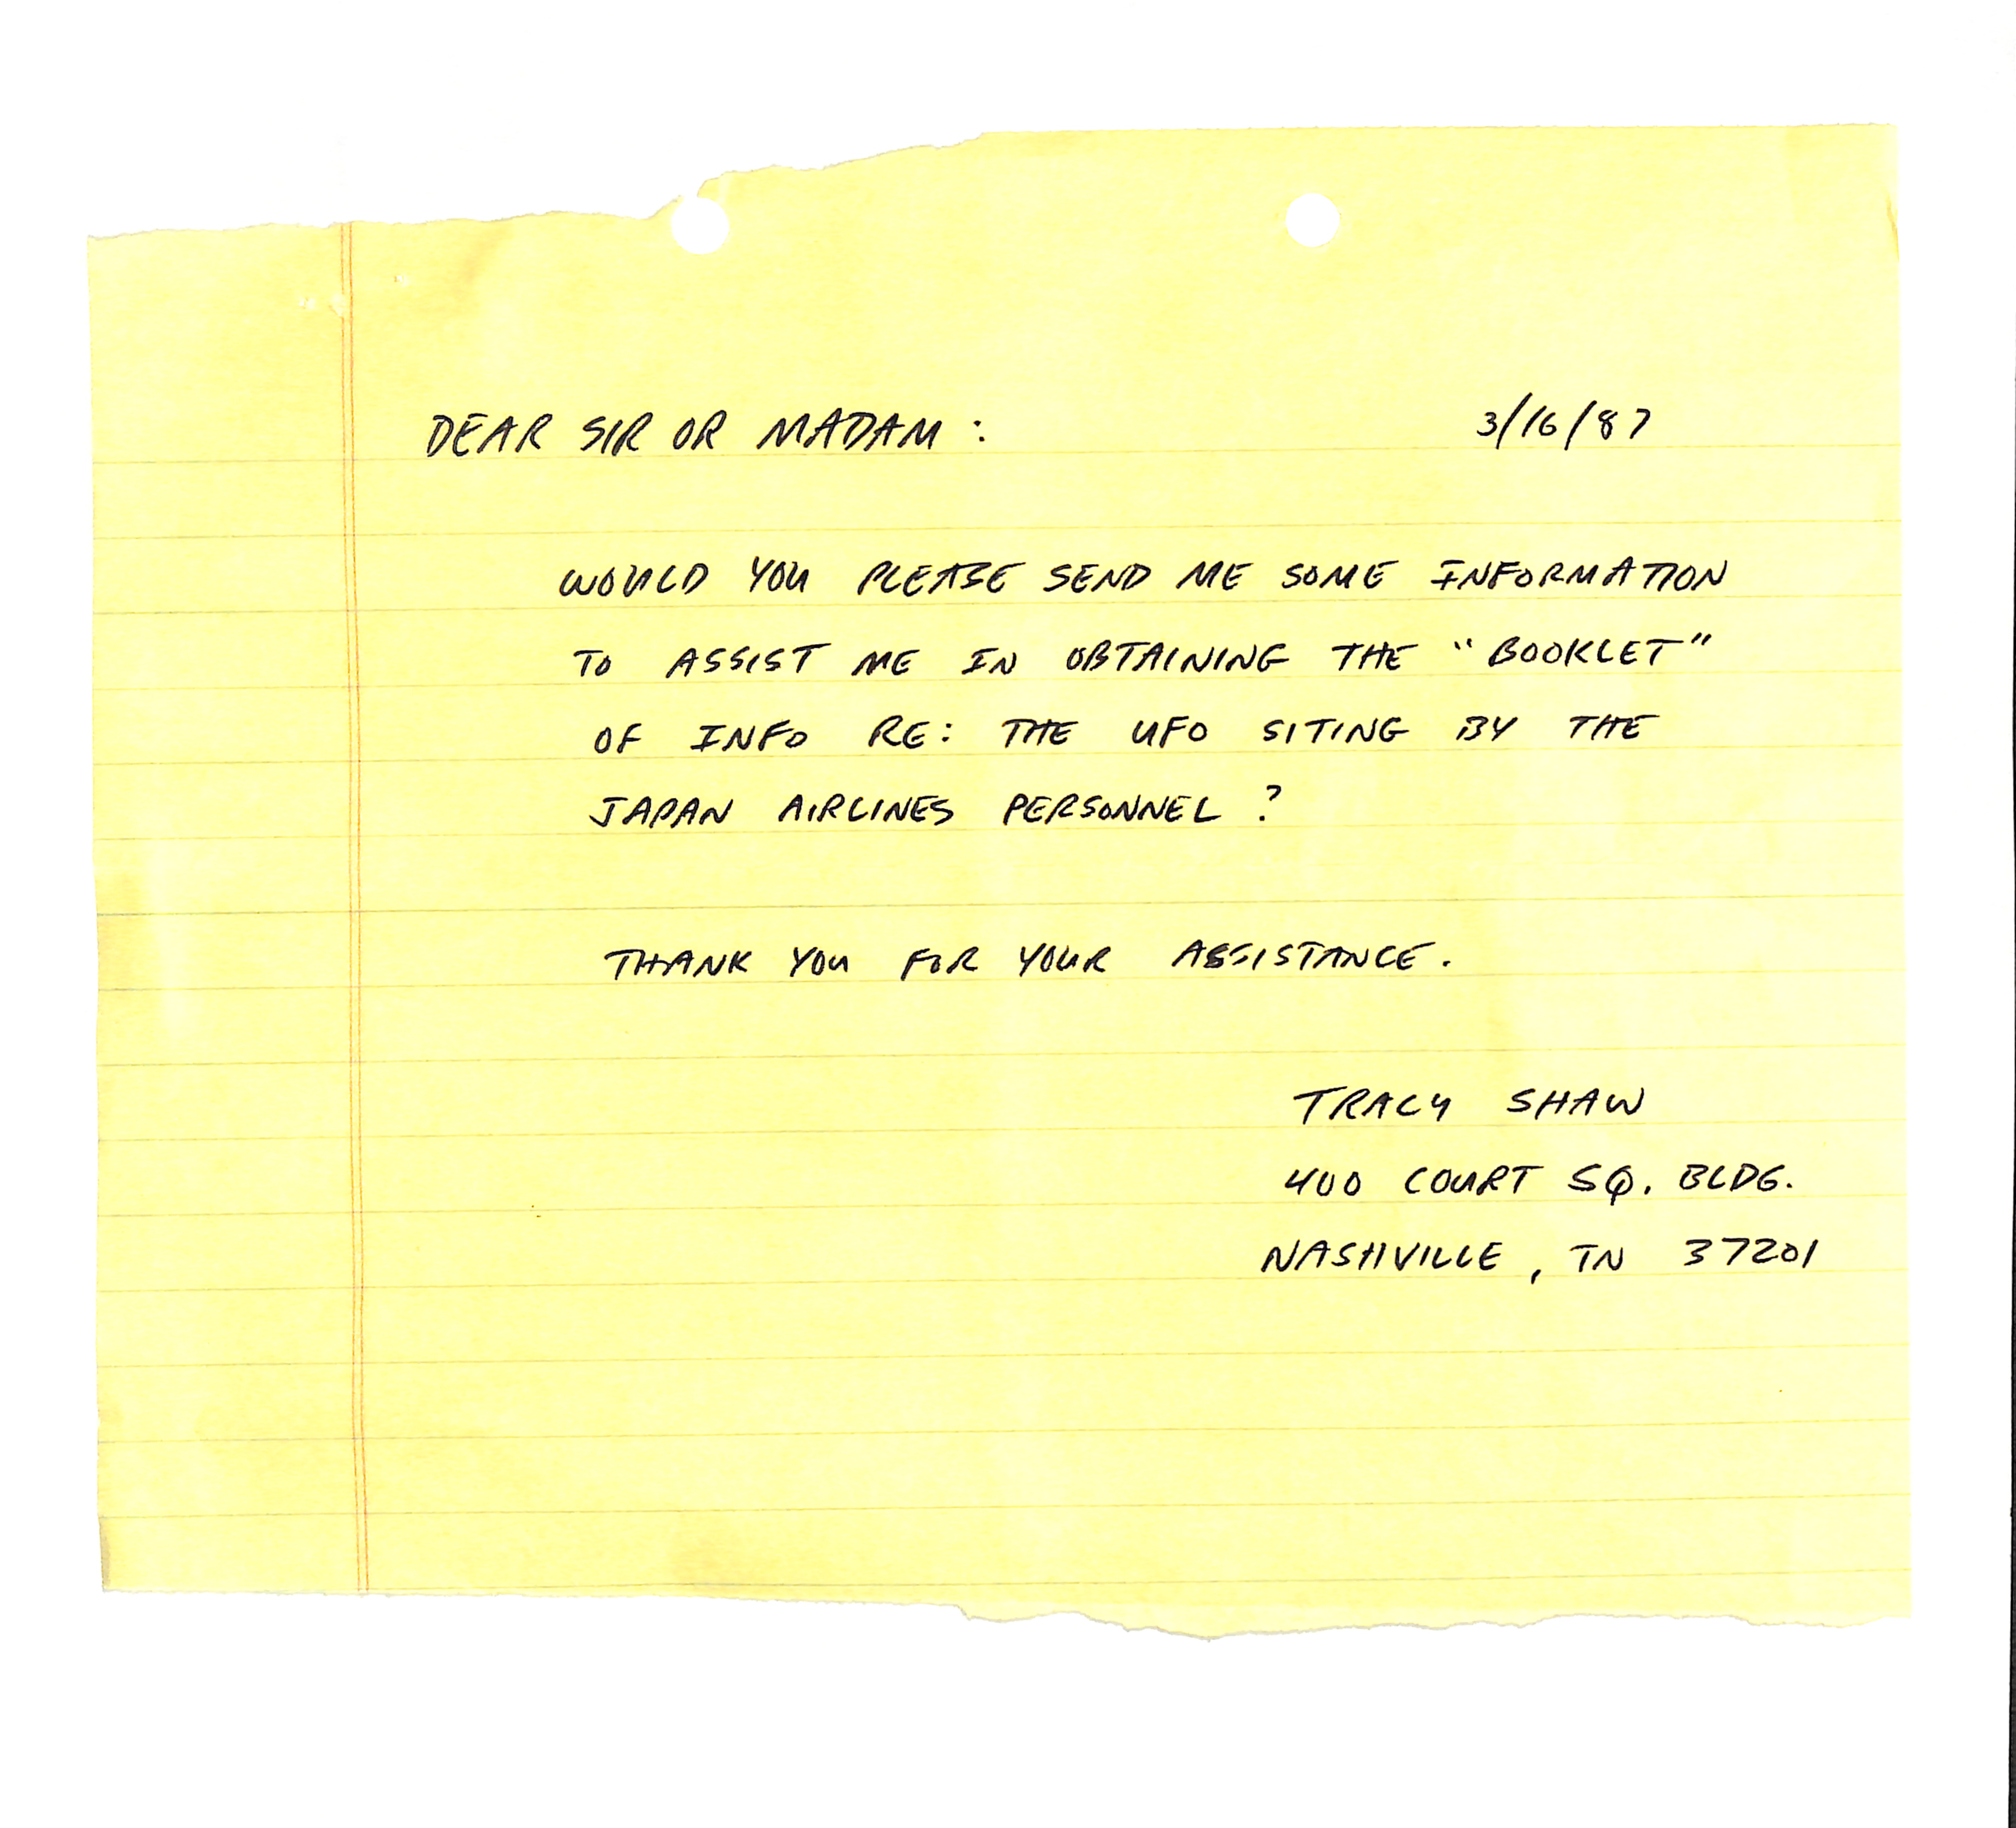 DEAR SIR OR MADAM : 3/16/87
WOULD YOU PLEASE SEND ME SOME INFORMATION
TO ASSIST ME IN OBTAINING THE "BOOKLET"
OF INFO RE: THE UFO SITING BY THE
JAPAN AIRLINES PERSONNEL ?
THANK YOU FOR YOUR ASSISTANCE.
TRACY SHAW
400 COURT SQ. BLDG.
NASHVILLE, TN 37201